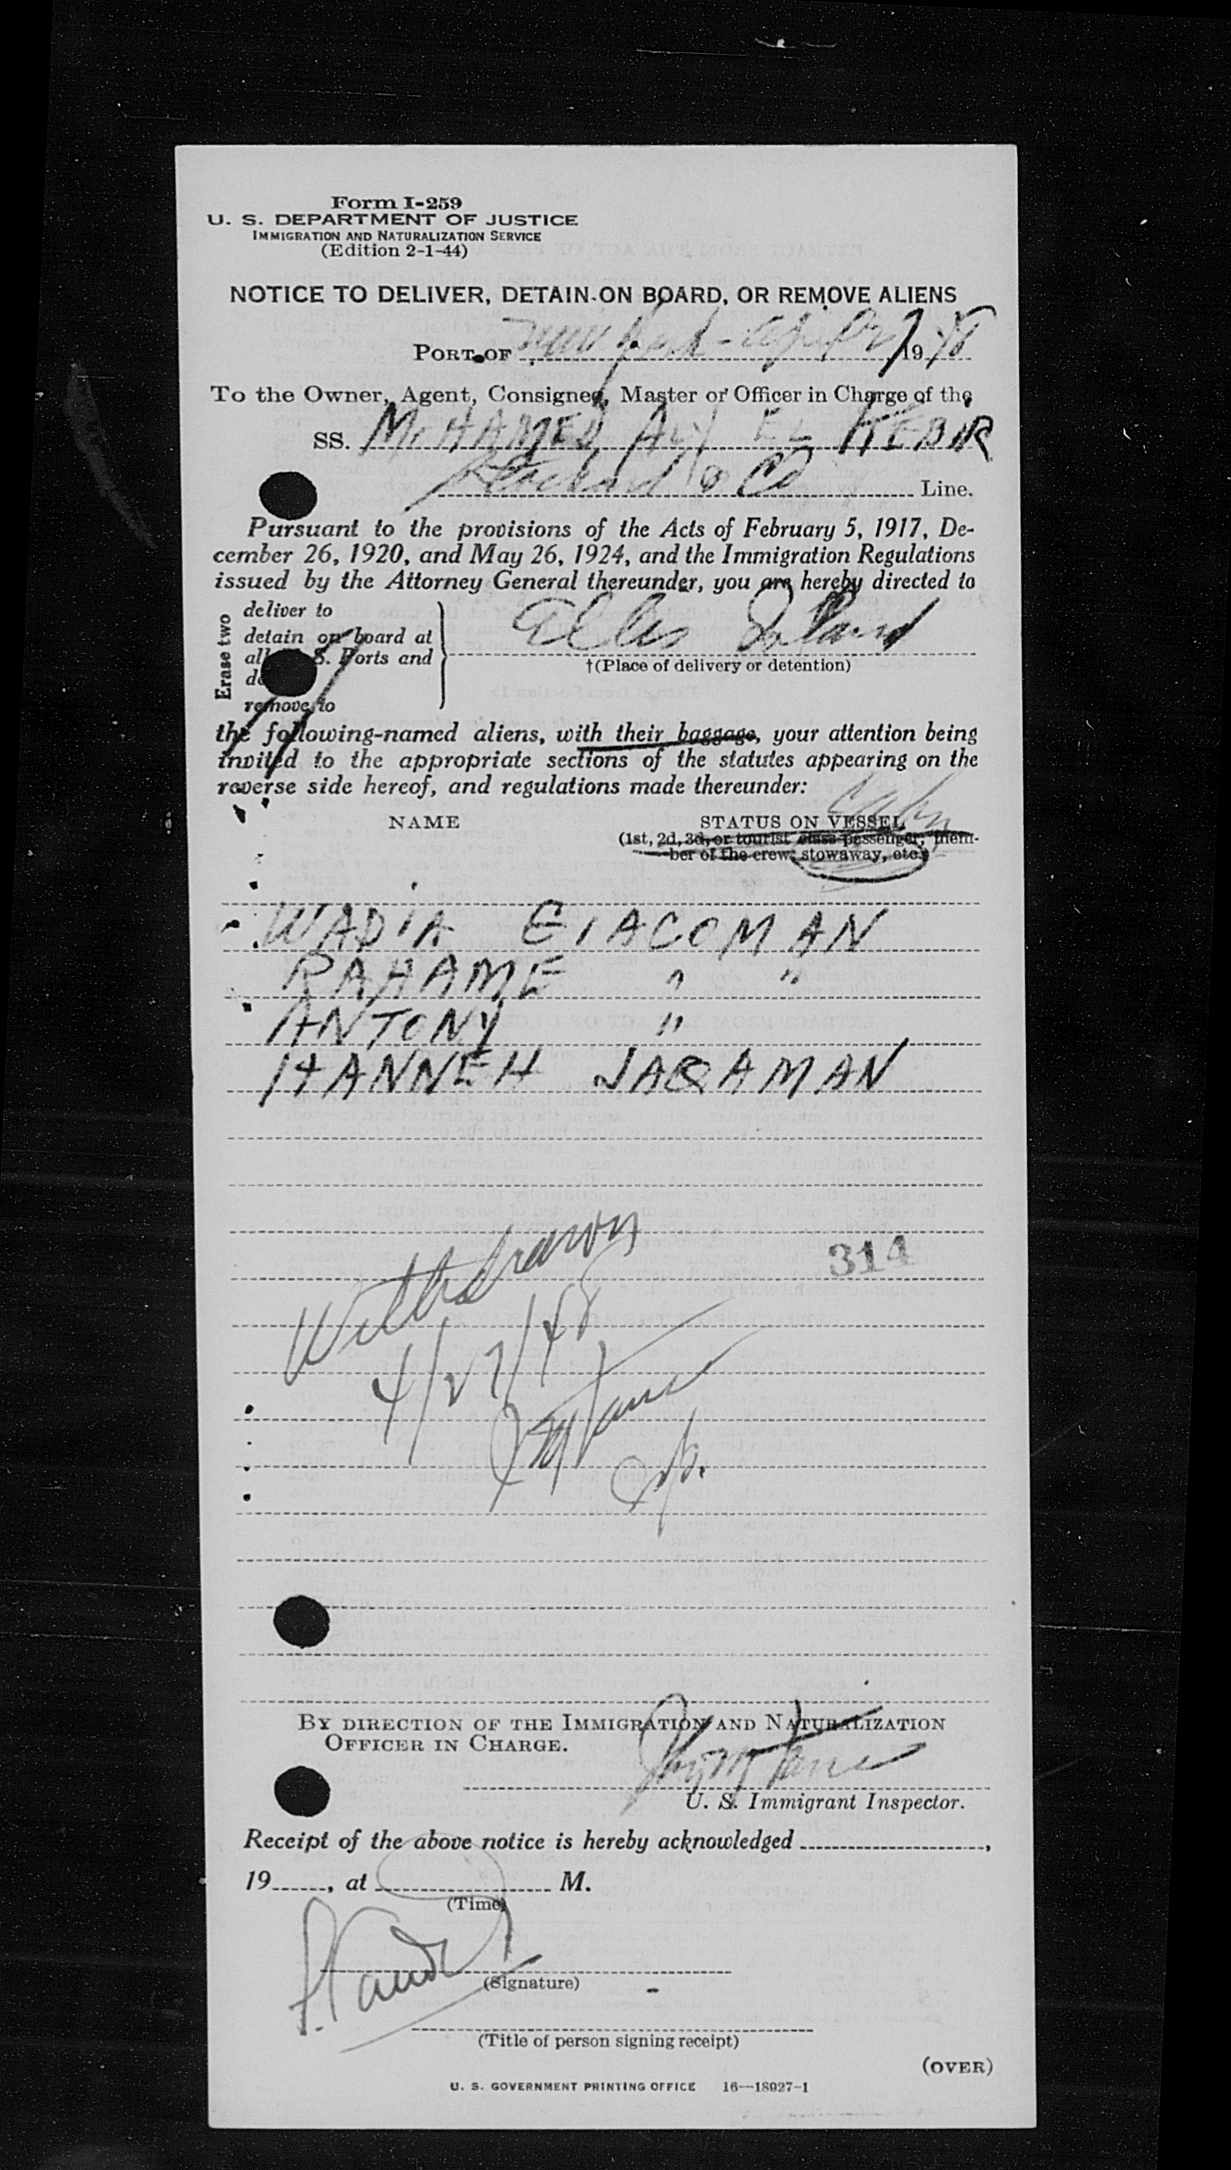 Form I-259
U. S. DEPARTMENT OF JUSTICE
IMMIGRATION AND NATURALIZATION SERVICE
(Edition 2-1-44)
NOTICE TO DELIVER, DETAIN ON BOARD, OR REMOVE ALIENS
PORT OF New York - April 27 1948
To the Owner, Agent, Consignee, Master or Officer in Charge of the
SS. MOHAMED ALY EL KEBIR
& Co Line.
Pursuant to the provisions of the Acts of February 5, 1917, De-
cember 26, 1920, and May 26, 1924, and the Immigration Regulations
issued by the Attorney General thereunder, you are hereby directed to
Erase two
deliver to
detain on board at
all U. S. Ports and
remove to
Ellis Island
†(Place of delivery or detention)
the following-named aliens, with their baggage, your attention being
invited to the appropriate sections of the statutes appearing on the
reverse side hereof, and regulations made thereunder:
Cabin
NAME STATUS ON VESSEL
(1st, 2d, 3d, or tourist class passenger, mem-
ber of the crew, stowaway, etc.)
WADIA GIACOMAN
RAHAME " "
ANTONY "
HANNEH JAQAMAN
Withdrawn
314
4/27/48
BY DIRECTION OF THE IMMIGRATION AND NATURALIZATION
OFFICER IN CHARGE.
U. S. Immigrant Inspector.
Receipt of the above notice is hereby acknowledged ,
19 , at M.
(Time)
(Signature)
(Title of person signing receipt)
(OVER)
U. S. GOVERNMENT PRINTING OFFICE 16—18927-1